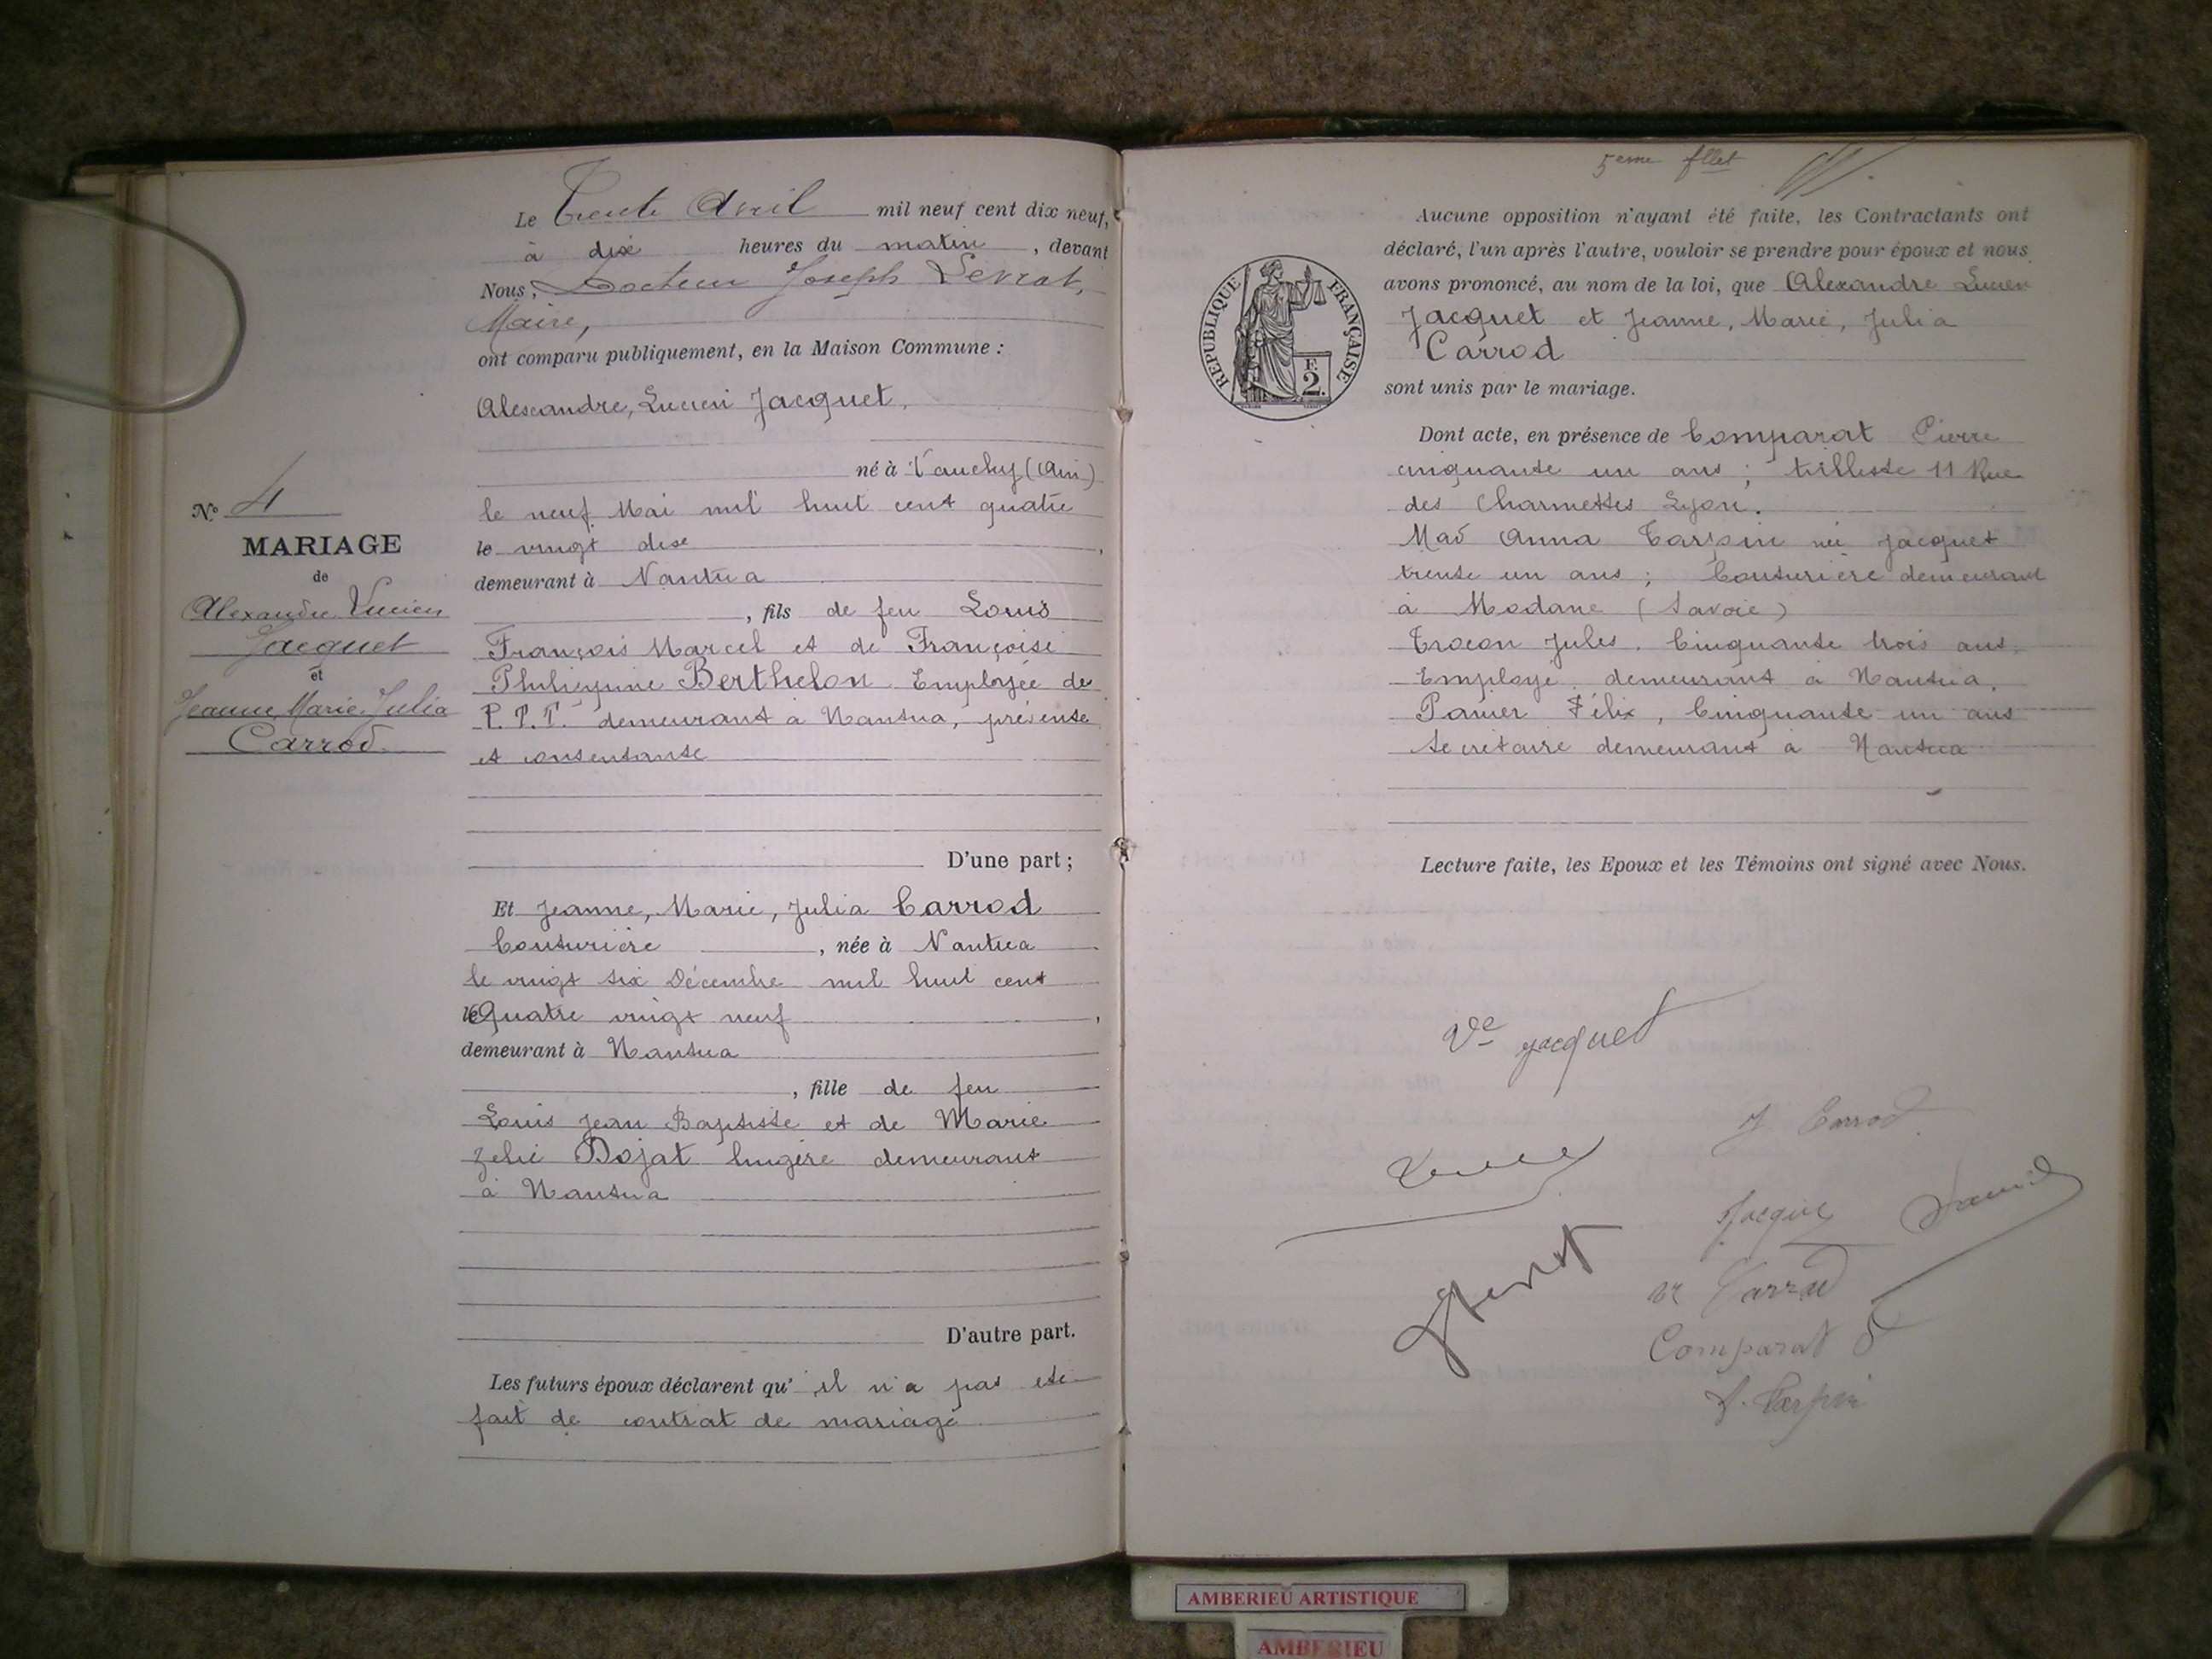 Le Trente Avril mil neuf cent dix neuf,
à dix heures du matin, devant
Nous, Docteur Joseph Levrat,
Maire,
ont comparu publiquement, en la Maison Commune :
Alexandre, Lucien Jacquet,
né à Vanchy (Ain)
le neuf Mai mil huit cent quatre
le vingt dix
demeurant à Nantua
, fils de feu Louis
François Marcel et de Françoise
Philippine Berthelon Employée de
P.T.T. demeurant à Nantua, présente
et consentante
D'une part ;
Et Jeanne, Marie, Julia Carrod
Couturière, née à Nantua
le vingt six Décembre mil huit cent
le Quatre vingt neuf,
demeurant à Nantua
, fille de feu
Louis Jean Baptiste et de Marie
Zélie Dojat lingère demeurant
à Nantua
D'autre part.
Les futurs époux déclarent qu'il n'a pas été
fait de contrat de mariage
N° 4
MARIAGE
de
Alexandre Lucien
Jacquet
et
Jeanne Marie Julia
Carrod
5eme fllet
Aucune opposition n'ayant été faite, les Contractants ont
déclaré, l'un après l'autre, vouloir se prendre pour époux et nous
avons prononcé, au nom de la loi, que Alexandre Lucien
Jacquet et Jeanne, Marie, Julia
Carrod
sont unis par le mariage.
RÉPUBLIQUE FRANÇAISE
F.
2.
Dont acte, en présence de Comparat Pierre
cinquante un ans ; tulliste 11 Rue
des Charmettes Lyon.
Mad Anna Tarpin née Jacquet
trente un ans ; Couturière demeurant
à Modane (Savoie)
Jules. Cinquante trois ans.
Employé, demeurant à Nantua,
Panier Félix, Cinquante un ans
Secrétaire demeurant à Nantua
Lecture faite, les Epoux et les Témoins ont signé avec Nous.
Ve Jacquet
J Carrod
Jacquet
Ve Carrod
Comparat
A. Tarpin
AMBERIEU ARTISTIQUE
AMBERIEU